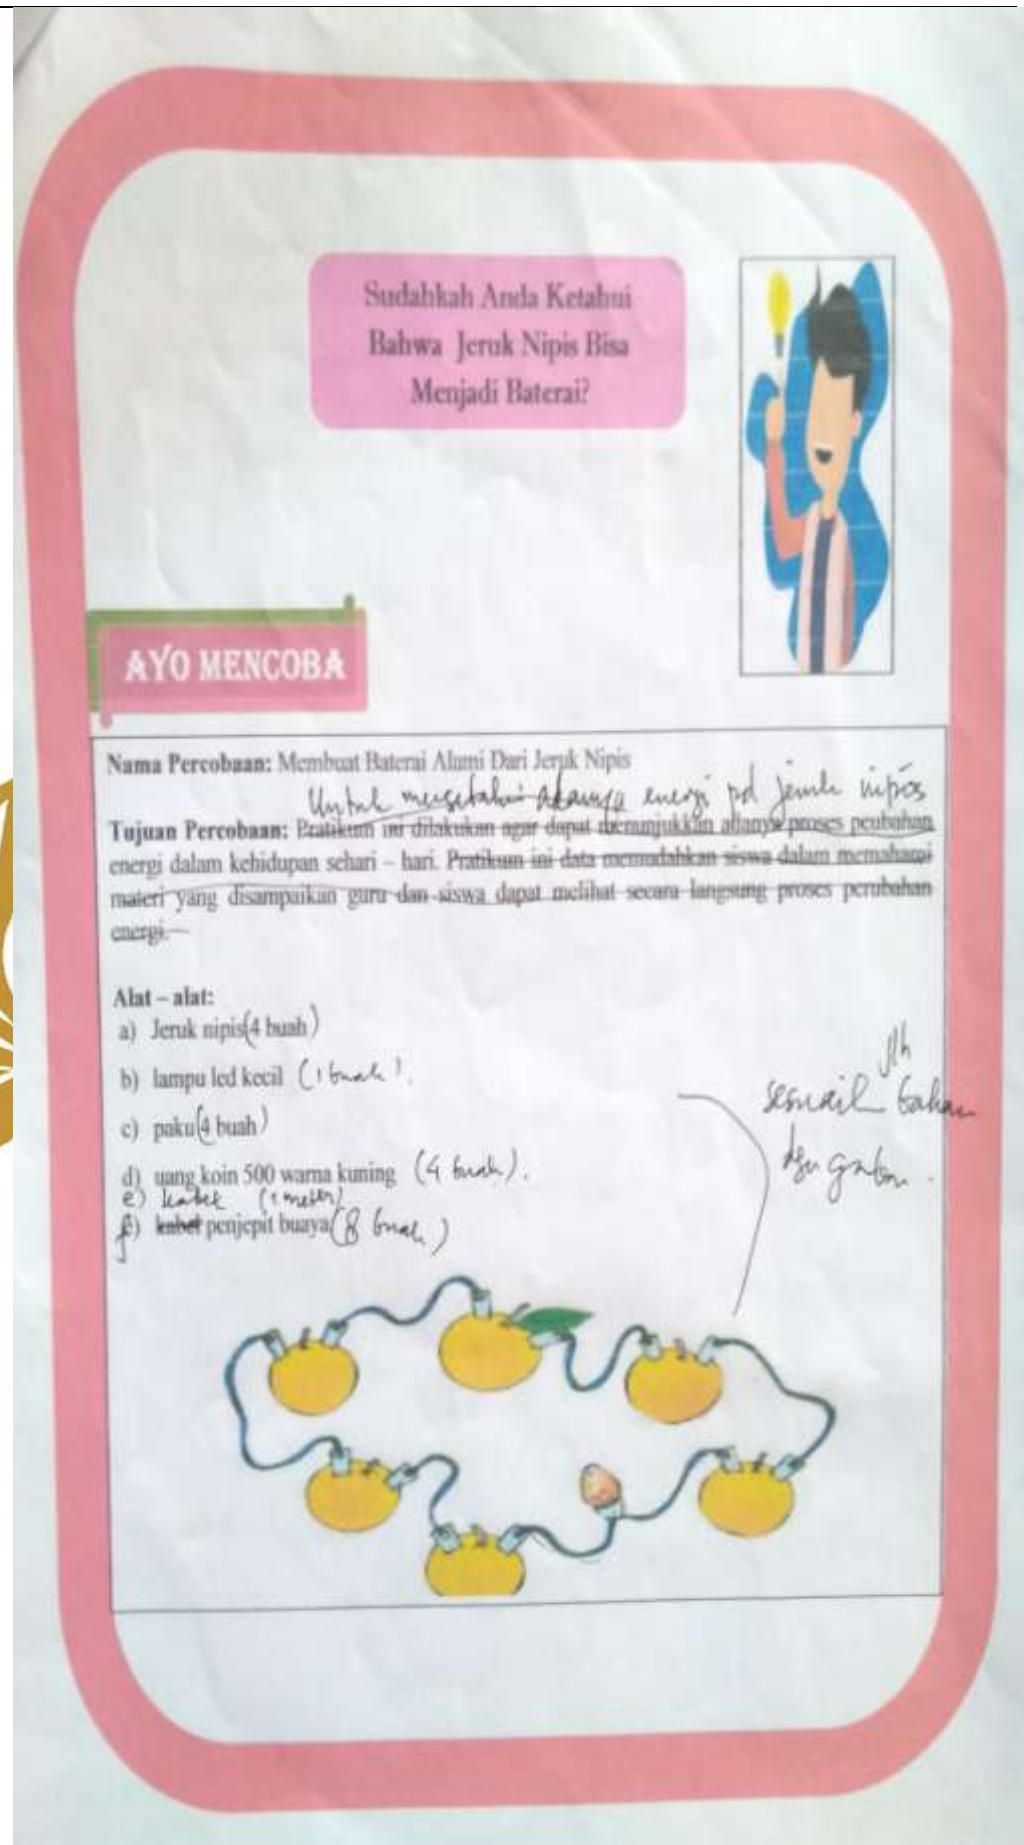 Sudahkah Anda Ketahui
Bahwa Jeruk Nipis Bisa
Menjadi Baterai?
AYO MENCOBA
Nama Percobaan: Membuat Baterai Alami Dari Jeruk Nipis
Untuk mengetahui adanya energi pd jeruk nipis
Tujuan Percobaan: Pratikum ini dilakukan agar dapat menunjukkan adanya proses peubahan
energi dalam kehidupan sehari – hari. Pratikum ini data memudahkan siswa dalam memahami
materi yang disampaikan guru dan siswa dapat melihat secara langsung proses perubahan
energi.
Alat – alat:
a) Jeruk nipis (4 buah)
b) lampu led kecil (1 buah).
c) paku (4 buah)
d) uang koin 500 warna kuning (4 buah).
e) kabel (1 meter)
f) kabel penjepit buaya (8 buah)
jlh
sesuail bahan
dgn gambar.